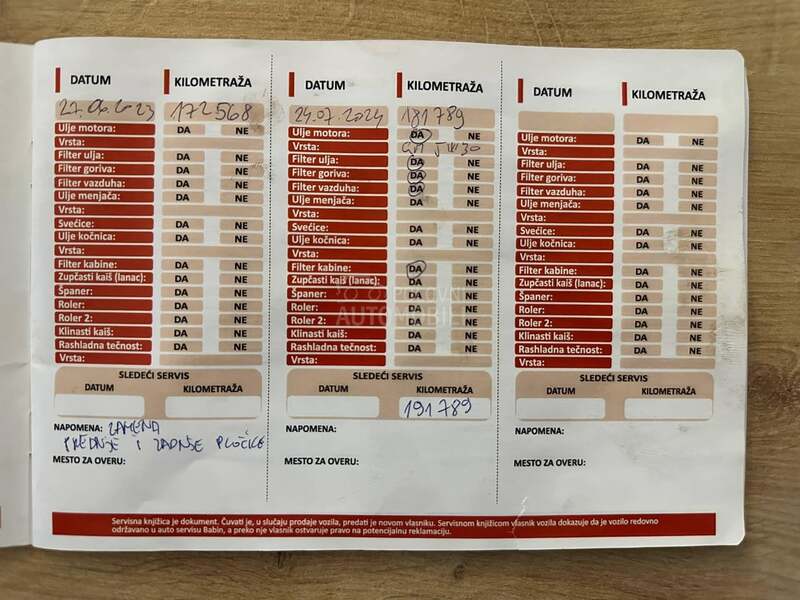 DATUM KILOMETRAŽA
27.06.2023 172568
Ulje motora: DA NE
Vrsta:
Filter ulja: DA NE
Filter goriva: DA NE
Filter vazduha: DA NE
Ulje menjača: DA NE
Vrsta:
Svećice: DA NE
Ulje kočnica: DA NE
Vrsta:
Filter kabine: DA NE
Zupčasti kaiš (lanac): DA NE
Španer: DA NE
Roler: DA NE
Roler 2: DA NE
Klinasti kaiš: DA NE
Rashladna tečnost: DA NE
Vrsta:
SLEDEĆI SERVIS
DATUM KILOMETRAŽA
NAPOMENA: ZAMENA
PREDNJE I ZADNJE PLOČICE
MESTO ZA OVERU:
DATUM KILOMETRAŽA
24.07.2024 181789
Ulje motora: DA NE
Vrsta: GM 5W30
Filter ulja: DA NE
Filter goriva: DA NE
Filter vazduha: DA NE
Ulje menjača: DA NE
Vrsta:
Svećice: DA NE
Ulje kočnica: DA NE
Vrsta:
Filter kabine: DA NE
Zupčasti kaiš (lanac): DA NE
Španer: DA NE
Roler: DA NE
Roler 2: DA NE
Klinasti kaiš: DA NE
Rashladna tečnost: DA NE
Vrsta:
SLEDEĆI SERVIS
DATUM KILOMETRAŽA
191789
NAPOMENA:
MESTO ZA OVERU:
DATUM KILOMETRAŽA
Ulje motora: DA NE
Vrsta:
Filter ulja: DA NE
Filter goriva: DA NE
Filter vazduha: DA NE
Ulje menjača: DA NE
Vrsta:
Svećice: DA NE
Ulje kočnica: DA NE
Vrsta:
Filter kabine: DA NE
Zupčasti kaiš (lanac): DA NE
Španer: DA NE
Roler: DA NE
Roler 2: DA NE
Klinasti kaiš: DA NE
Rashladna tečnost: DA NE
Vrsta:
SLEDEĆI SERVIS
DATUM KILOMETRAŽA
NAPOMENA:
MESTO ZA OVERU:
Servisna knjižica je dokument. Čuvati je, u slučaju prodaje vozila, predati je novom vlasniku. Servisnom knjižicom vlasnik vozila dokazuje da je vozilo redovno
održavano u auto servisu Babin, a preko nje vlasnik ostvaruje pravo na potencijalnu reklamaciju.